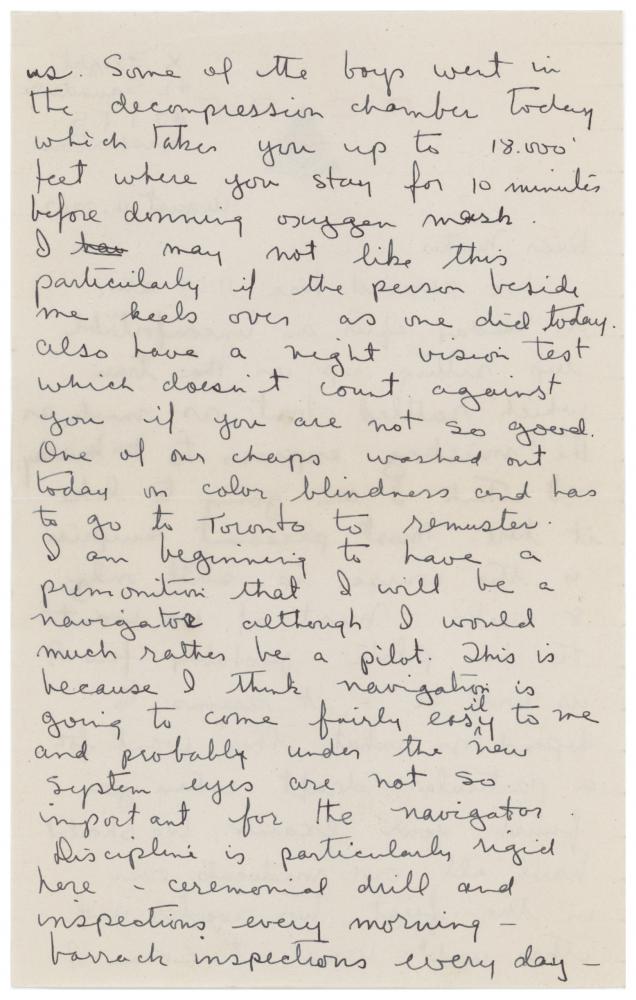 us. Some of the boys went in
the decompression chamber today
which takes you up to 18.000'
feet where you stay for 10 minutes
before donning oxygen mask.
I may not like this
particularly if the person beside
me keels over as one did today.
also have a night vision test
which doesn't count against
you if you are not so good.
One of our chaps washed out
today on color blindness and has
to go to Toronto to remuster.
I am beginning to have a
premonition that I will be a
navigator although I would
much rather be a pilot. This is
because I think navigation is
going to come fairly easily to me
and probably under the new
system eyes are not so
important for the navigator.
Discipline is particularly rigid
here - ceremonial drill and
inspections every morning -
barrack inspections every day -